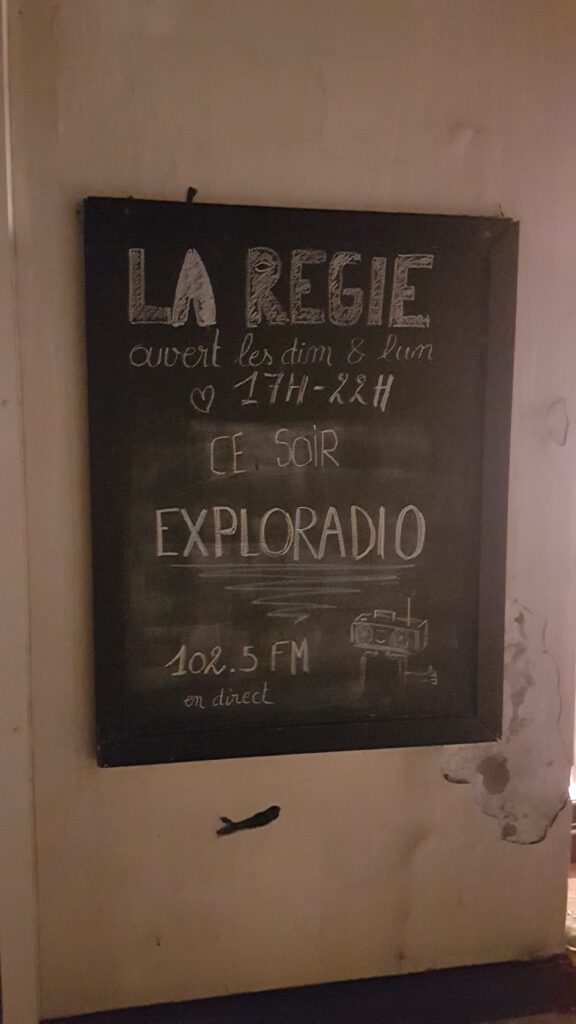 LA REGIE
ouvert les dim & lun
♡ 17H-22H
CE SOIR
EXPLORADIO
102.5 FM
en direct